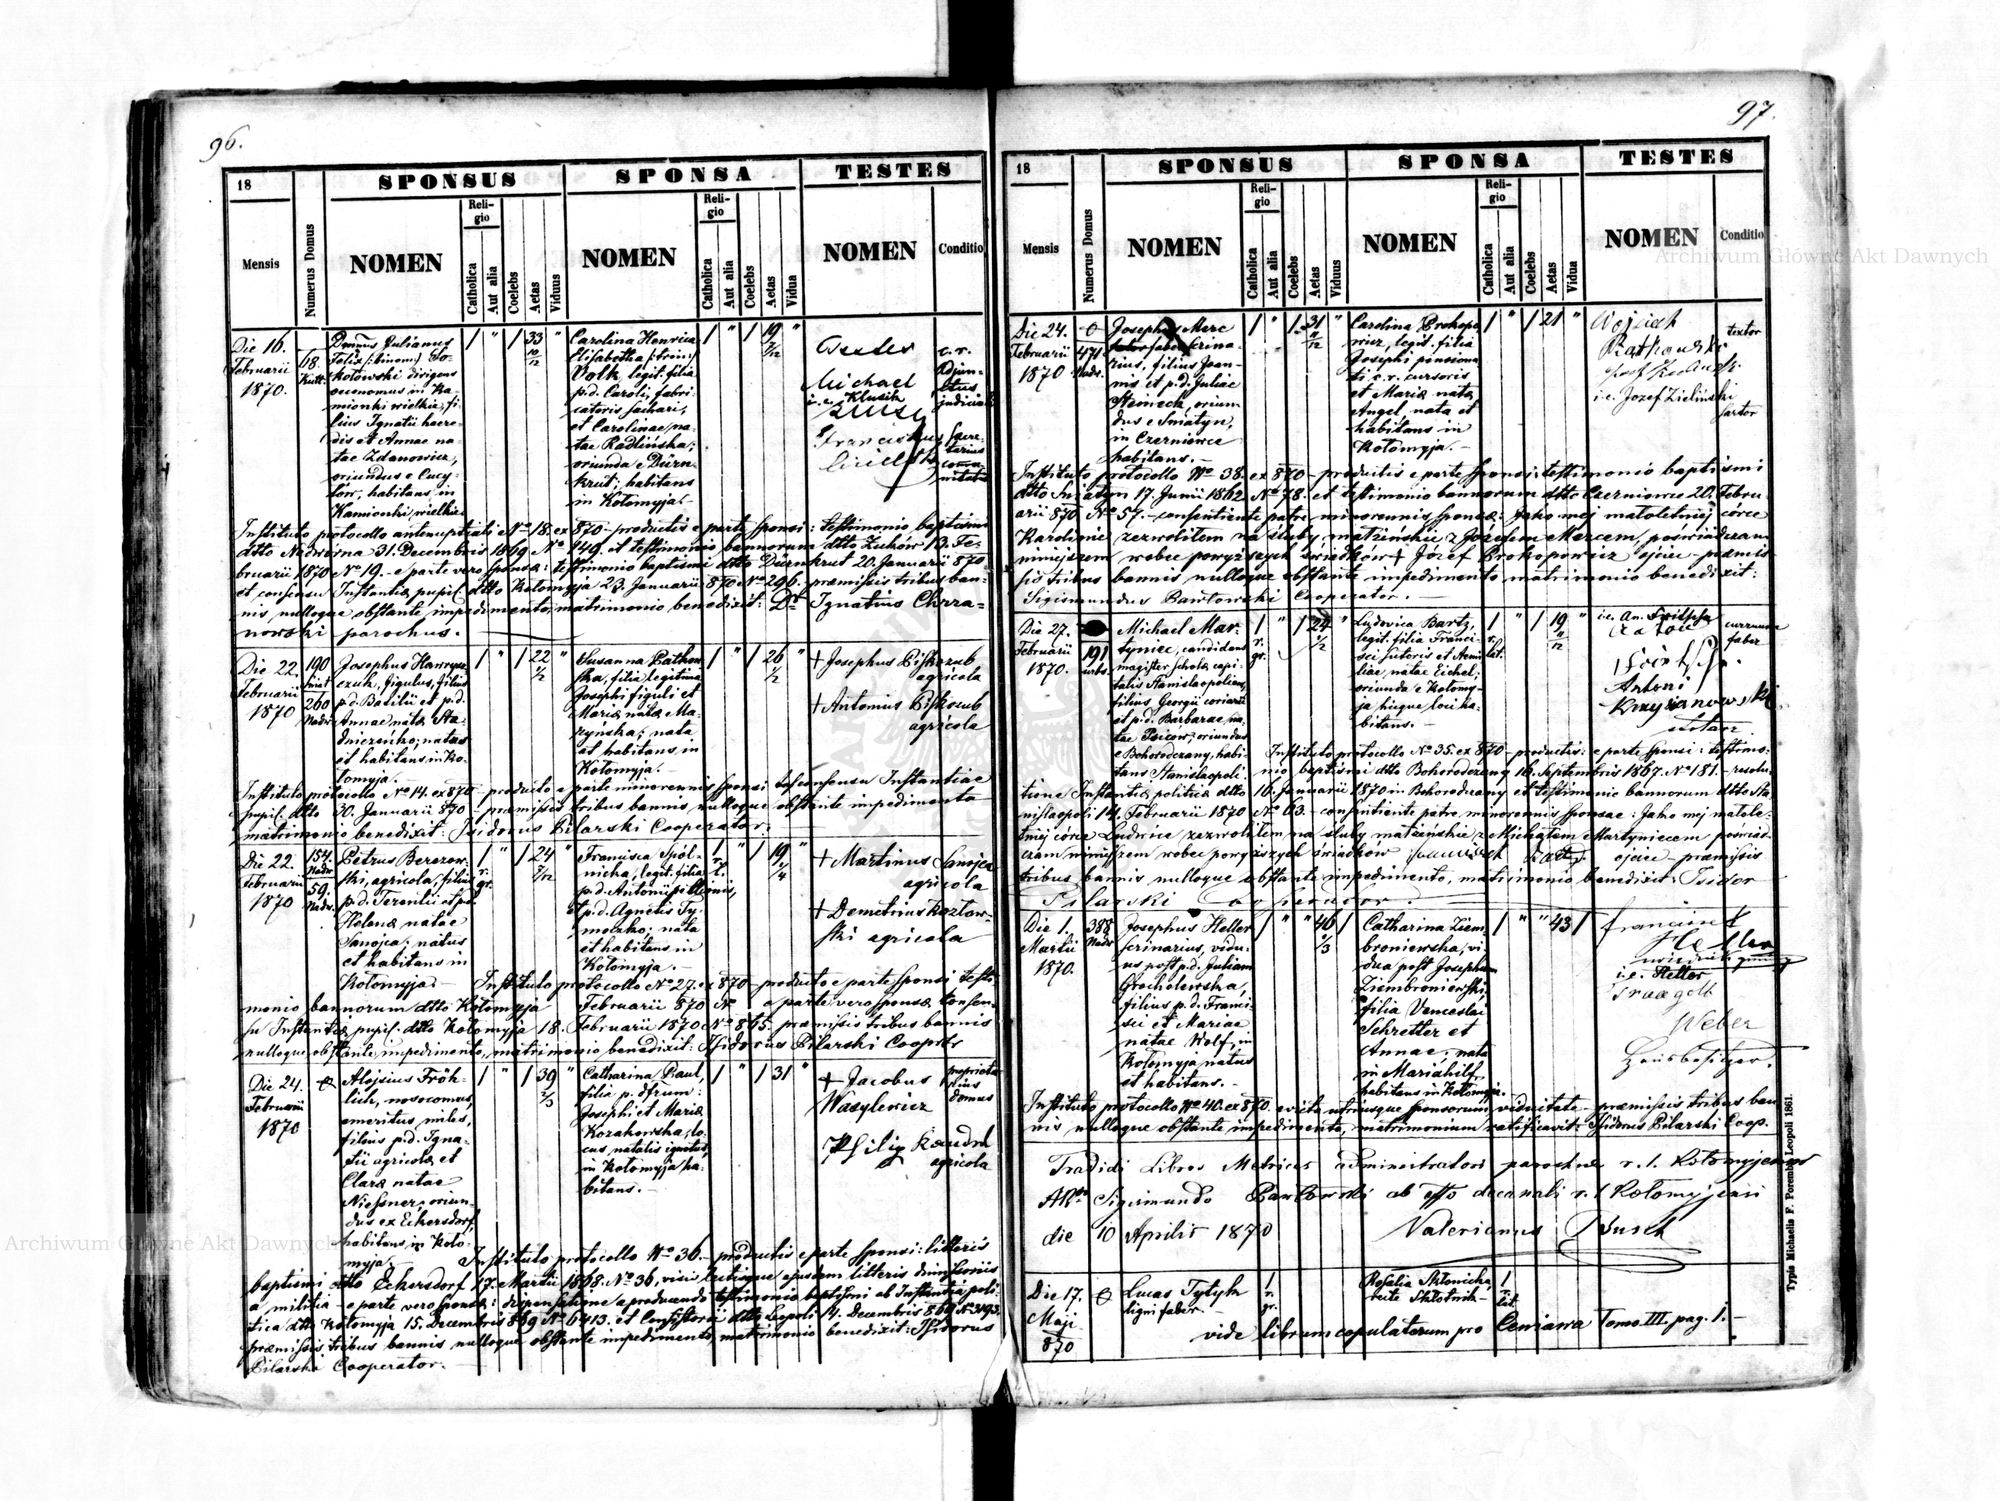 96.
18
SPONSUS
SPONSA
TESTES
Mensis
Numerus Domus
NOMEN
Religio
Catholica
Aut alia
Coelebs
Aetas
Viduus
NOMEN
Religio
Catholica
Aut alia
Coelebs
Aetas
Vidua
NOMEN
Conditio
Die 16.
Februarii
1870.
68.
Kutt.
Domus Julianus
Felix (:binom:) So-
kołowski dirigens
oeconomus in Ka-
mionki wielkie, fi-
lius Ignatii haere-
dis et Annae na-
tae Zdanowicz,
oriundus e Cucy-
łow, habitans in
Kamionki wielkie
1 " 1 33 10/12 "
Carolina Henrica
Elisabetha (:trin:)
Volk, legit. filia
p.d. Caroli, fabri-
catoris sachari,
et Carolinae, na-
tae Radlińska;
oriunda e Dürn-
krut; habitans
in Kołomyja.
1 " 1 19 7/12 "
Michael
i.e. Klusik
Franciskus
c.r.
Adjun-
ctus
judicial
Secre-
tarius
Instituto protocollo antenuptiali Nº 18. ex 870 productis e parte sponsi: testimonio baptismi
dtto Nadwórna 31. Decembris 1869 Nº 149. et testimonio bannorum dtto Zuków 13. Fe-
bruarii 1870 Nº 19. - e parte vero sponsae: testimonio baptismi dtto Dürnkrut 20. Januarii 870
et consensu Instantiae pupil. dtto Kołomyja 23. Januarii 870 Nº 296. praemissis tribus ban-
nis nulloque obstante impedimento, matrimonio benedixit: Dr Ignatius Chrza-
nowski parochus.
Die 22.
Februarii
1870
190
260
Nadw.
Josephus Hawrysz-
czuk, figulus, filius
p.d. Basilii et p.d.
Annae natae Sta-
dniczeńko; natus
et habitans in Ko-
łomyja.
1 " 1 22 1/2 "
Susanna Rathow-
ska, filia legitima
Josephi figuli et
Mariae natae Ma-
zyńska; nata
et habitans in
Kołomyja.
1 " 1 26 1/2 "
+ Josephus Piskozub
agricola
+ Antonius Piskozub
agricola
Instituto protocollo Nº 14. ex 870 producto e parte minorennis sponsi consensu Instantiae
pupil. dtto 30. Januarii 870 praemissis tribus bannis, nulloque obstante impedimento
matrimonio benedixit: Isidorus Pilarski Cooperator.
Die 22.
Februarii
1870
154.
Nadw.
59.
Nadw.
Petrus Berezow-
ski, agricola, filius
p.d. Terentii et p.d.
Helenae natae
Sanojca; natus
et habitans in
Kołomyja
1 r. gr. " 1 24 7/12 "
Francisca Spól-
nicka, legit. filia
p.d. Antonii
et p.d. Agnetis Ty-
moszko; nata
et habitans in
Kołomyja.
1 r. l. " 1 19 1/4 "
+ Martinus Sanojca
agricola
+ Demetrius Kozłow-
ski agricola
Instituto protocollo Nº 27. ex 870 producto e parte sponsi testi-
monio bannorum dtto Kołomyja Februarii 870 Nº e parte vero sponsae consen-
su Instantiae pupil. dtto Kołomyja 18. Februarii 1870 Nº 865. praemissis tribus bannis
nulloque obstante impedimento, matrimonio benedixit: Isidorus Pilarski Cooprtr
Die 24.
Februarii
1870
0
Alojsius Fröh-
lich, nosocomus
emeritus miles,
filius p.d. Igna-
tii agricolae et
Clarae natae
Niessner, oriun-
dus ex Eckersdorf,
habitans in Koło-
myja.
1 " 1 39 2/3 "
Catharina Paul,
filia p. dfrum:
Josephi et Mariae
Kozakowska, lo-
cus natalis ignotus,
in Kołomyja ha-
bitans.
1 " 1 31 "
+ Jacobus
Wasylewicz
proprieta-
rius
domus
Philip Kaudel
agricola
Instituto protocollo Nº 36. - productis e parte sponsi: litteris
baptismi dtto Eckersdorf 17. Martii 1868. Nº 36, visis lectisque ejusdem litteris dimissoriis
a militia - e parte vero sponsae: dispensatione a producendo testimonio baptismi ab Instantia poli-
tica dtto Kołomyja 15. Decembris 869 Nº 6413. et Consistorii dtto Leopoli 14. Decembris 869 Nº 3193.
praemissis tribus bannis nulloque obstante impedimento, matrimonio benedixit: Isidorus
Pilarski Cooperator.
97.
18
SPONSUS
SPONSA
TESTES
Mensis
Numerus Domus
NOMEN
Religio
Catholica
Aut alia
Coelebs
Aetas
Viduus
NOMEN
Religio
Catholica
Aut alia
Coelebs
Aetas
Vidua
NOMEN
Conditio
Die 24.
Februarii
1870
0
471
Nadw.
Josephus Merc
faber scrina-
rius, filius Joan-
nis et p.d. Juliae
Steineck, oriun-
dus e Sniatyn,
in Czerniowce
habitans.
1 " 1 31 11/12 "
Carolina Prokopo-
wicz, legit. filia
Josephi pensiona-
ti c.r. cursoris
et Mariae nata
Angel, nata et
habitans in
Kołomyja.
1 " 1 21 "
Wojciech
Rathowski
textor
i.e. Jozef Zieliński
sartor
Instituto protocollo Nº 38. ex 870 productis e parte sponsi: testimonio baptismi
dtto Sniatyn 17. Junii 1862 Nº 78. et testimonio bannorum dtto Czerniowce 20. Febru-
arii 870 Nº 57. consentiente patre minorennis sponsae: Jako mej małoletniej córce
Karolinie zezwoliłem na śluby małżeńskie z Józefem Mercem, poświadczam
niniejszem wobec powyższych świadków + Józef Prokopowicz ojciec - praemis-
sis tribus bannis nulloque obstante impedimento matrimonio benedixit:
Sigismundus Pawłowski Cooperator.
Die 27.
Februarii
1870.
191
urbs.
Michael Mar-
tyniec, candidatus
magister scholae capi-
talis Stanislaopoliens,
filius Georgii coriarii
et p.d. Barbarae, na-
tae Psicow; oriundus
e Bohorodczany, habi-
tans Stanislaopoli.
1 r. gr. " 1 24 1/2 "
Ludovica Bartz,
legit. filia Franci-
sci sutoris et Aemi-
liae, natae Eichel;
oriunda e Kołomy-
ja hicque loci ha-
bitans.
1 r. lat. " 1 19 11/12 "
i.e. An. Fritscha
Anton
Fritsche.
curruum
faber
Antoni
Krzyżanowski
Instituto protocollo Nº 35. ex 870 productis: e parte sponsi: testimo-
nio baptismi dtto Bohorodczany 16. Septembris 1867. Nº 181. - resolu-
tione Instantiae politicae dtto 16. Januarii 1870 in Bohorodczany et testimonio bannorum dtto Sta-
nislaopoli 14. Februarii 1870 Nº 63. - consentiente patre minorennis sponsae: Jako mej małole-
tniej córce Ludwice zezwoliłem na śluby małżeńskie z Michałem Martyniecem poświad-
czam niniejszem wobec powyższych świadków Franciszek Bartz ojciec - praemissis
tribus bannis nulloque obstante impedimento, matrimonio benedixit: Isidor
Pilarski Cooperator.
Die 1.
Martii
1870.
388
Nadw
Josephus Heller
scrinarius, vidu-
us post p.d. Juliam
Grocholewska,
filius p.d. Franci-
sci et Mariae
natae Wolf, in
Kołomyja natus
et habitans.
1 " " 46 1/3 1
Catharina Ziem-
broniewska, vi-
dua post Josephum
Ziembroniewski,
filia Venceslai
Schretter et
Annae; nata
in Mariahilf,
habitans in Kołomyja.
1 " " 43 1
Francisek
Heller
i.e. Heller
Weber
Hausbesitzer.
Instituto protocollo Nº 40. ex 870. evicta utriusque sponsorum viduitate - praemissis tribus ban-
nis nulloque obstante impedimento, matrimonium ratificavit: Isidorus Pilarski Coop.
Tradidi Libros Metrices administratori parochiae r. l. Kołomyjensis
ARdo Sigismundo Pawłowski ab offo decanali r. l. Kołomyjensi
die 10 Aprilis 1870 Valerianus Busch
Die 17.
Maji
870
0
Lucas Tytyk
ligni faber.
1 r. gr.
Rosalia Skłonicka,
recte Skłotnik-
1 r. lat.
vide librum copulatorum pro Ceniawa Tomo III. pag. 1.
Typis Michaelis F. Poremba Leopoli 1861.
Archiwum Główne Akt Dawnych
Archiwum Główne Akt Dawnych